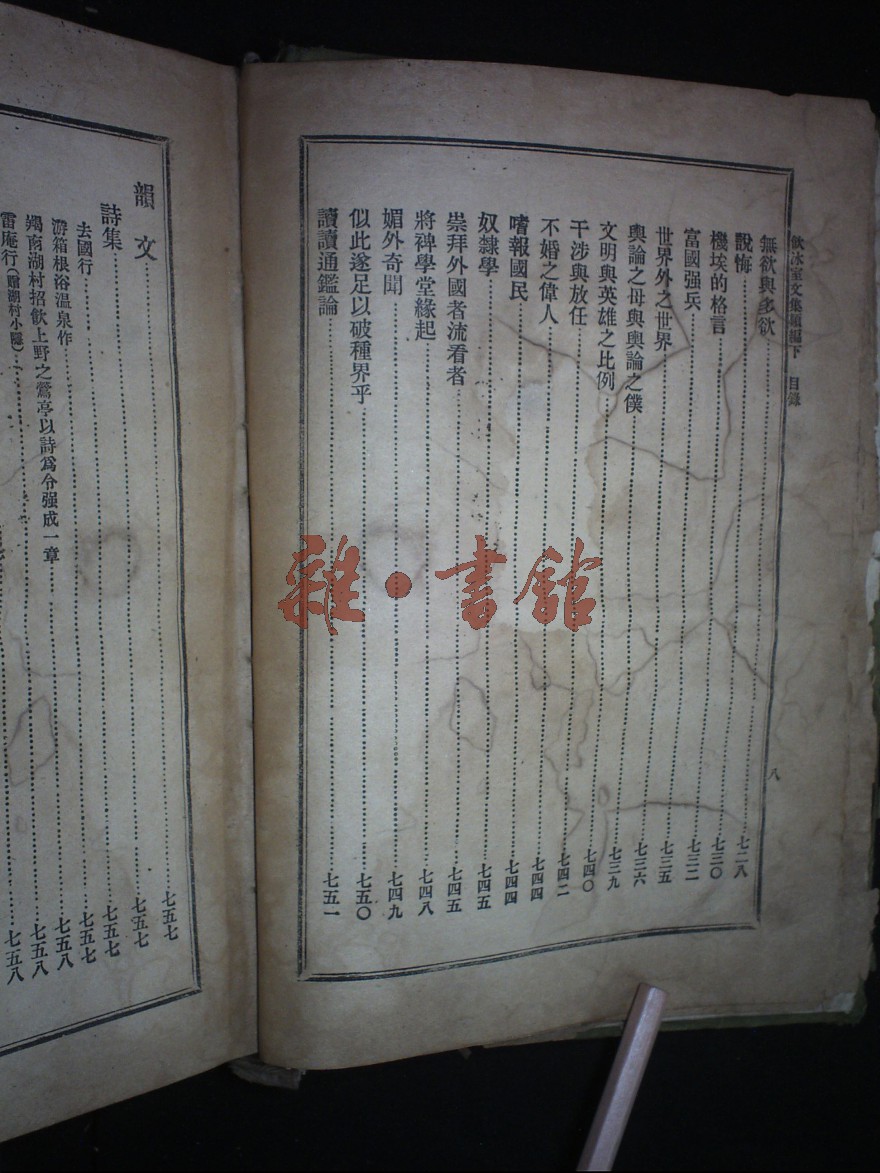 飲冰室文集類編下 目錄
八
無欲與多欲……七二八
說悔……七三〇
機埃的格言……七三二
富國强兵……七三五
世界外之世界……七三六
輿論之母與輿論之僕……七三九
文明與英雄之比例……七四〇
干涉與放任……七四二
不婚之偉人……七四四
嗜報國民……七四四
奴隸學……七四五
崇拜外國者流看者……七四五
將裨學堂緣起……七四八
媚外奇聞……七四九
似此遂足以破種界乎……七五〇
讀讀通鑑論……七五一
韻文……七五七
詩集……七五七
去國行……七五七
游箱根浴溫泉作……七五七
羯南湖村招飲上野之鶯亭以詩爲令强成一章……七五八
雷庵行(贈湖村小隱)……七五八
七五八
雜·書館